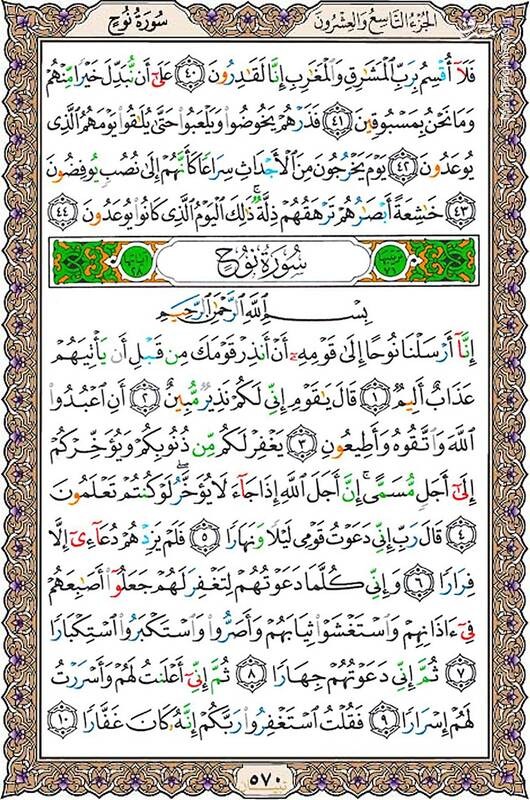 الجزء التاسع والعشرون
سورة نوح
فَلَآ أُقْسِمُ بِرَبِّ ٱلْمَشَٰرِقِ وَٱلْمَغَٰرِبِ إِنَّا لَقَٰدِرُونَ ٤٠ عَلَىٰٓ أَن نُّبَدِّلَ خَيْرًا مِّنْهُمْ
وَمَا نَحْنُ بِمَسْبُوقِينَ ٤١ فَذَرْهُمْ يَخُوضُوا۟ وَيَلْعَبُوا۟ حَتَّىٰ يُلَٰقُوا۟ يَوْمَهُمُ ٱلَّذِى
يُوعَدُونَ ٤٢ يَوْمَ يَخْرُجُونَ مِنَ ٱلْأَجْدَاثِ سِرَاعًا كَأَنَّهُمْ إِلَىٰ نُصُبٍ يُوفِضُونَ
٤٣ خَٰشِعَةً أَبْصَٰرُهُمْ تَرْهَقُهُمْ ذِلَّةٌ ۚ ذَٰلِكَ ٱلْيَوْمُ ٱلَّذِى كَانُوا۟ يُوعَدُونَ ٤٤
ترتيبها ٧١ سُورَةُ نُوحٍ آياتها ٢٨
بِسْمِ ٱللَّهِ ٱلرَّحْمَٰنِ ٱلرَّحِيمِ
إِنَّآ أَرْسَلْنَا نُوحًا إِلَىٰ قَوْمِهِۦٓ أَنْ أَنذِرْ قَوْمَكَ مِن قَبْلِ أَن يَأْتِيَهُمْ
عَذَابٌ أَلِيمٌ ١ قَالَ يَٰقَوْمِ إِنِّى لَكُمْ نَذِيرٌ مُّبِينٌ ٢ أَنِ ٱعْبُدُوا۟
ٱللَّهَ وَٱتَّقُوهُ وَأَطِيعُونِ ٣ يَغْفِرْ لَكُم مِّن ذُنُوبِكُمْ وَيُؤَخِّرْكُمْ
إِلَىٰٓ أَجَلٍ مُّسَمًّى ۚ إِنَّ أَجَلَ ٱللَّهِ إِذَا جَآءَ لَا يُؤَخَّرُ ۖ لَوْ كُنتُمْ تَعْلَمُونَ
٤ قَالَ رَبِّ إِنِّى دَعَوْتُ قَوْمِى لَيْلًا وَنَهَارًا ٥ فَلَمْ يَزِدْهُمْ دُعَآءِىٓ إِلَّا
فِرَارًا ٦ وَإِنِّى كُلَّمَا دَعَوْتُهُمْ لِتَغْفِرَ لَهُمْ جَعَلُوٓا۟ أَصَٰبِعَهُمْ
فِىٓ ءَاذَانِهِمْ وَٱسْتَغْشَوْا۟ ثِيَابَهُمْ وَأَصَرُّوا۟ وَٱسْتَكْبَرُوا۟ ٱسْتِكْبَارًا
٧ ثُمَّ إِنِّى دَعَوْتُهُمْ جِهَارًا ٨ ثُمَّ إِنِّىٓ أَعْلَنتُ لَهُمْ وَأَسْرَرْتُ
لَهُمْ إِسْرَارًا ٩ فَقُلْتُ ٱسْتَغْفِرُوا۟ رَبَّكُمْ إِنَّهُۥ كَانَ غَفَّارًا ١٠
٥٧٠